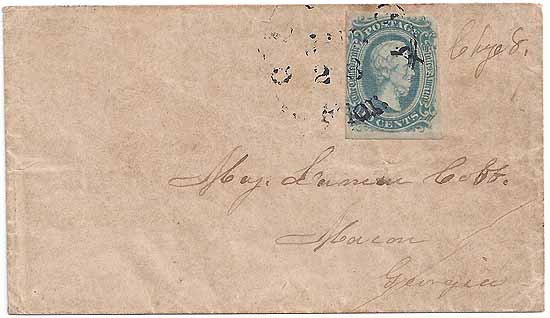 POSTAGE
CENTS
2
Chg 8.
Maj. Lamar Cobb.
Macon
Georgia